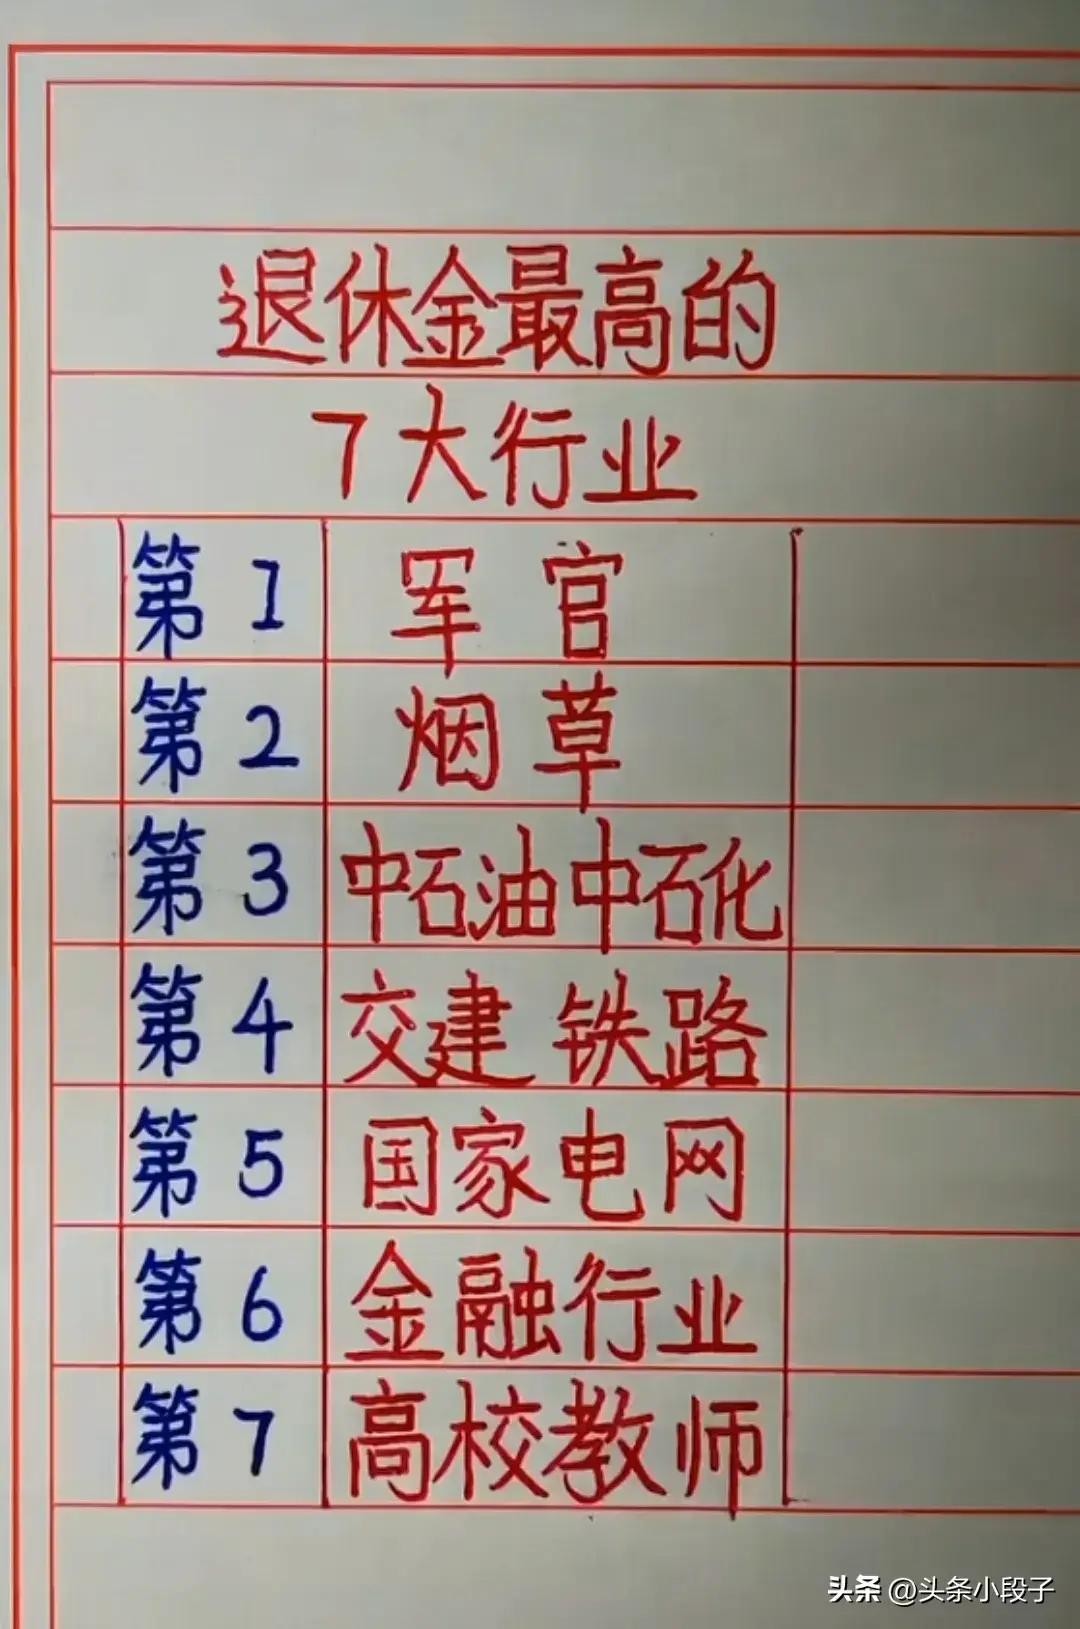 退休金最高的
7大行业
第1 军官
第2 烟草
第3 中石油中石化
第4 交建 铁路
第5 国家电网
第6 金融行业
第7 高校教师
头条 @头条小段子